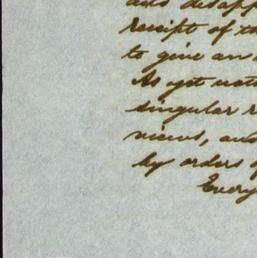 and disapp
receipt of th
to give an a
As yet noth
singular r
views, and
by orders of
Every